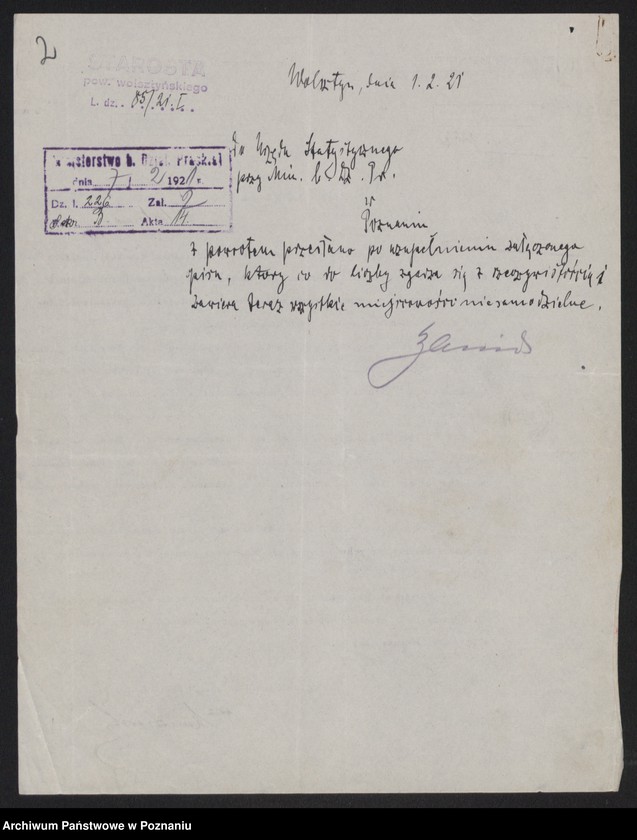 2
STAROSTA
pow. wolsztyńskiego
L. dz. 85/21. I.
Wolsztyn, dnia 1. 2. 21
Do Urzędu Statystycznego
przy Min. b. Dz. Pr.
w
Poznaniu
Ministerstwo b. Dziel. Pruskiej
dnia 7. 2 1921 r.
Dz. l. 226 Zał. 2
B. Akta 14.
z powrotem przesłano po uzupełnieniu załączonego
spisu, który co do liczby zgadza się z rzeczywistością i
zawiera teraz wszystkie miejscowości niesamodzielne.
Archiwum Państwowe w Poznaniu